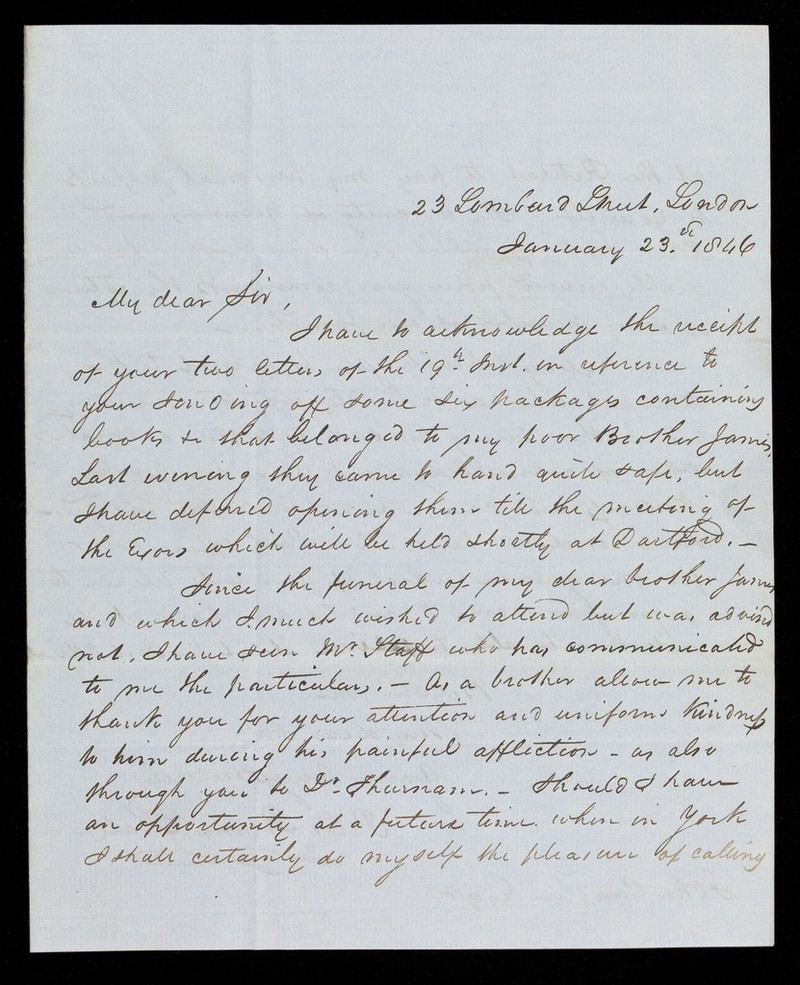 23 Lombard Street, London
January 23.rd 1846
My dear Sir,
I have to acknowledge the receipt
of your two letters of the 19th Inst. in reference to
your sending off some six packages containing
books &c that belonged to my poor Brother James,
Last evening they came to hand quite safe, but
I have defered opening them till the meeting of
the Exors which will be held shortly at Dartford. —
Since the funeral of my dear brother James
and which I much wished to attend but was advised
not, I have seen Mr. Staff who has communicated
to me the particulars. — As a brother allow me to
thank you for your attention and uniform kindness
to him during his painful affliction - as also
through you to Dr. Thurnam. — Should I have
an opportunity at a future time when in York
I shall certainly do myself the pleasure of calling